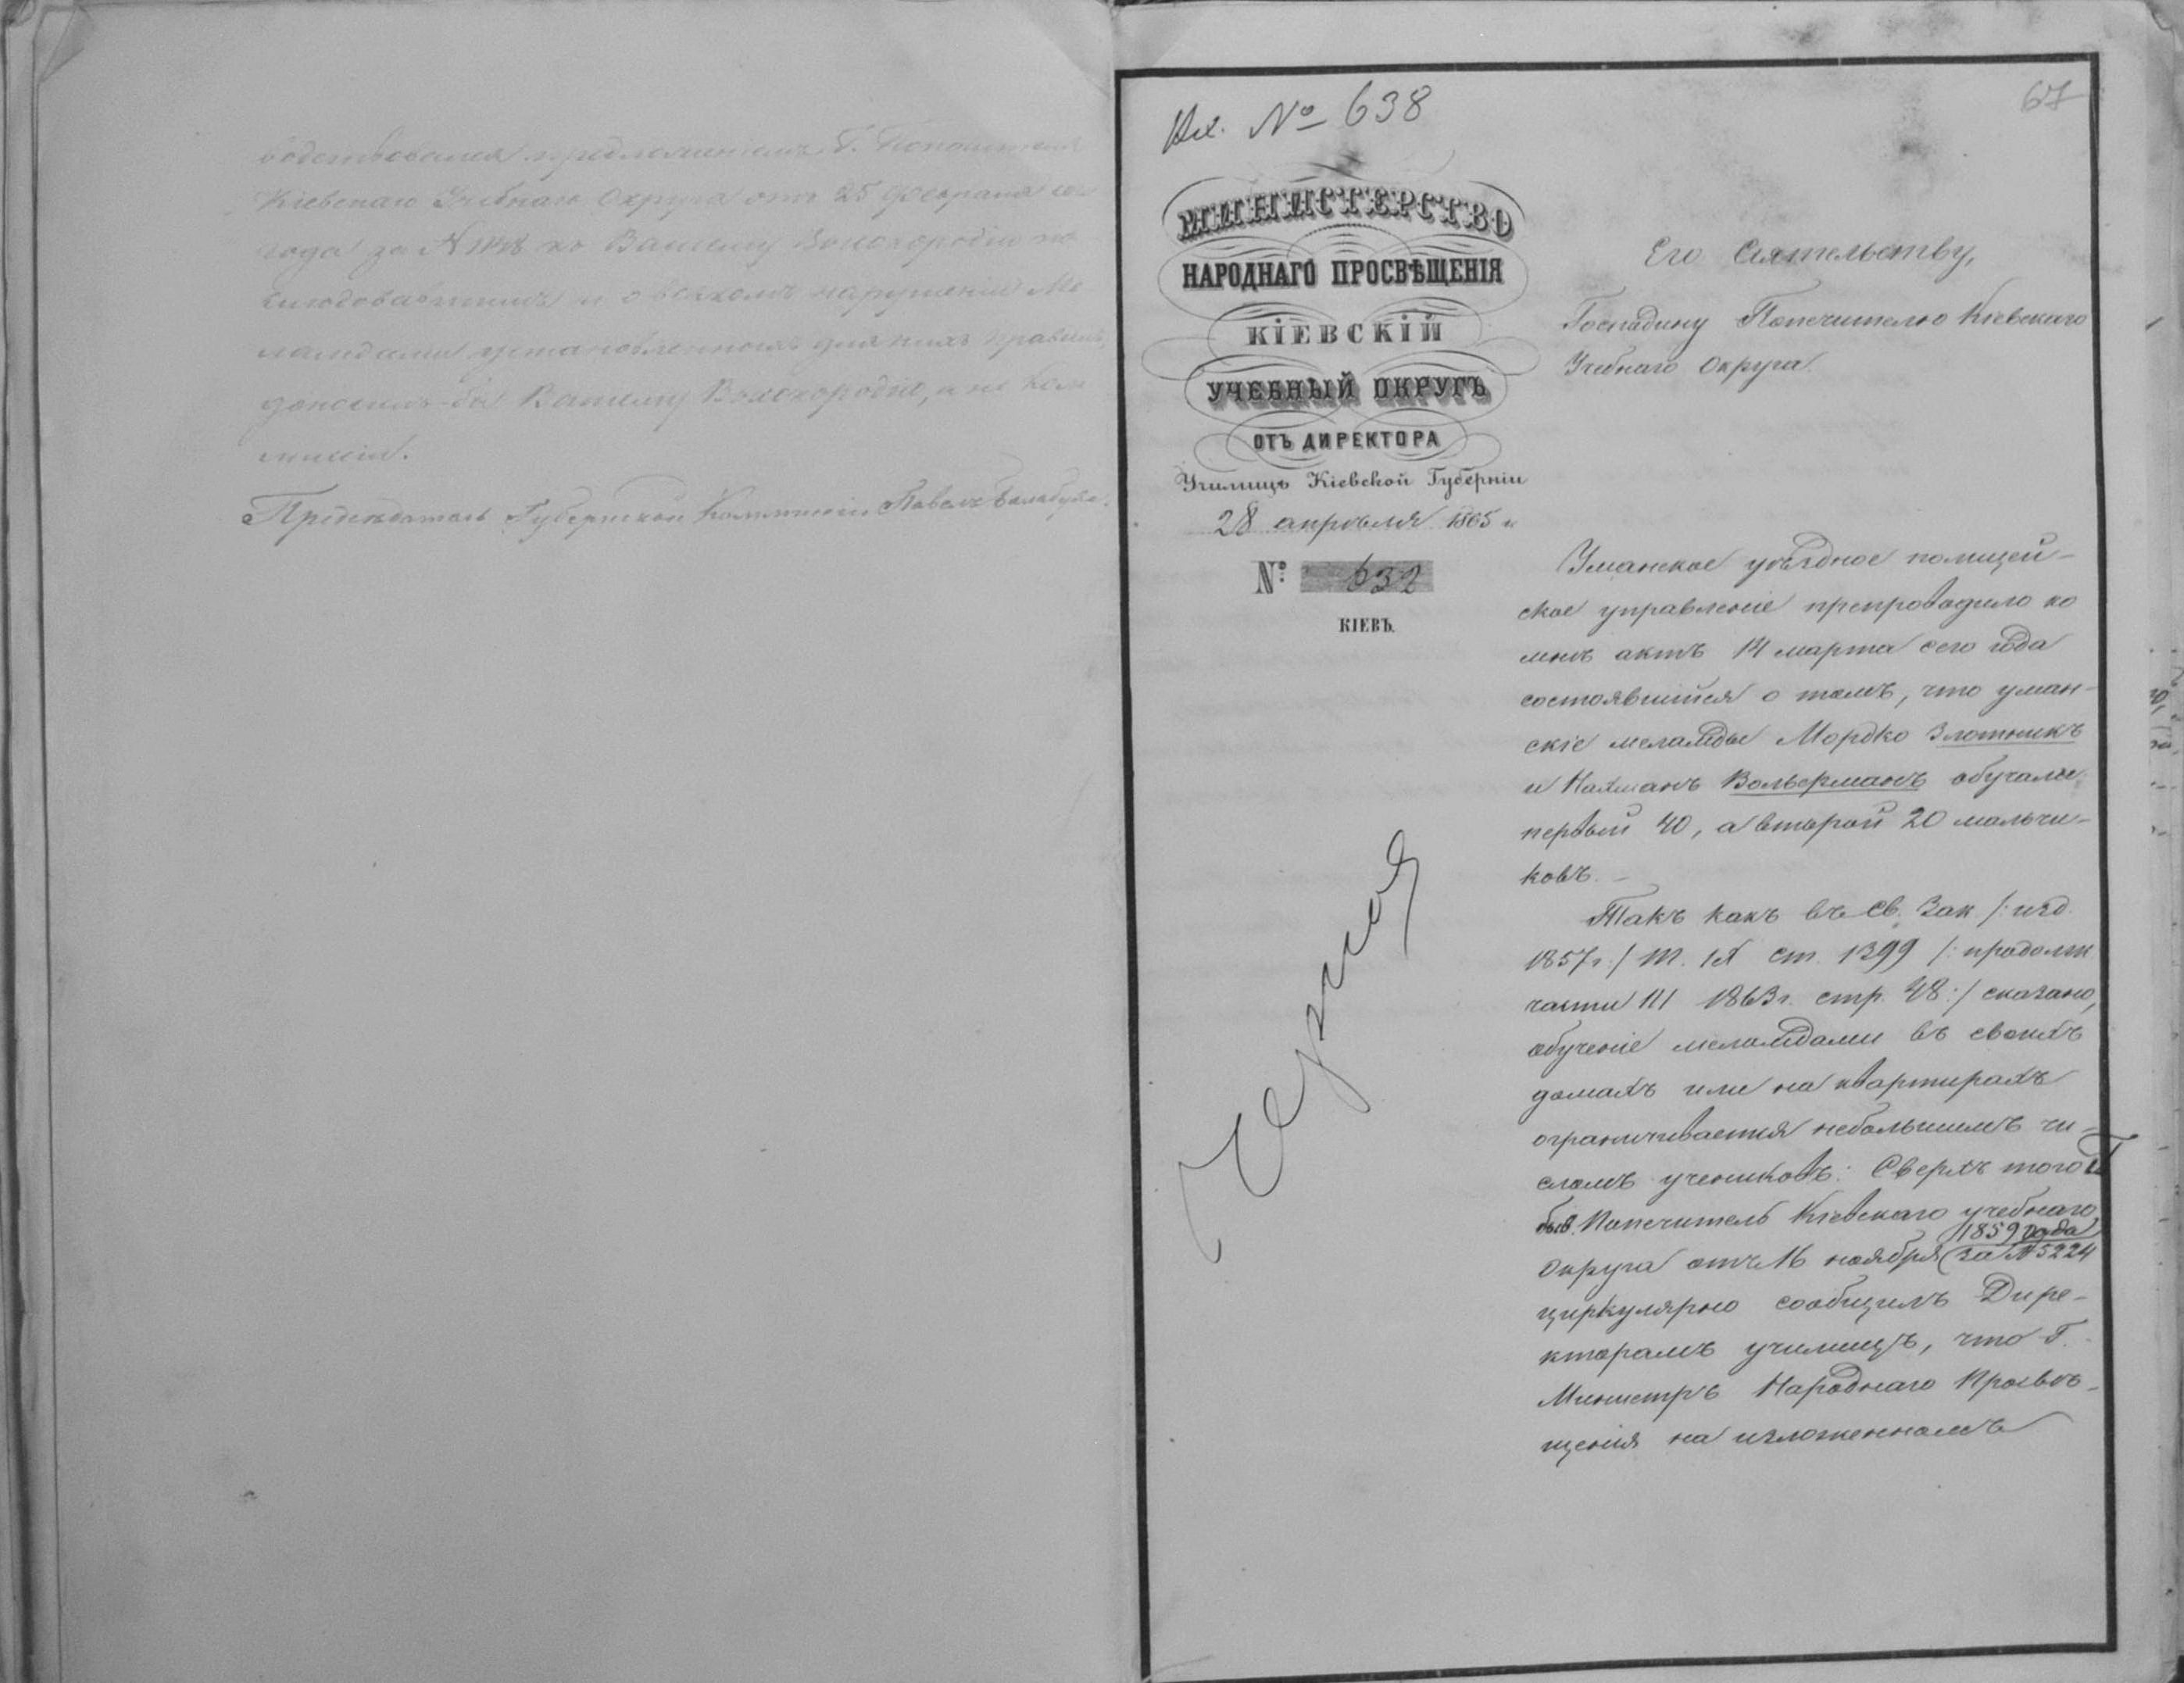 водствовался предложеніемъ Г. Попечителя
Кіевскаго Учебнаго Округа отъ 25 Февраля сего
года за № 1148 къ Вашему Высокородію по
слѣдовавшимъ и о всякомъ нарушеніи Ме
ламдами установленныхъ для нихъ правилъ,
доносилъ-бы Вашему Высокородію, а не Ком
мисіи.
Предсѣдатель Губернской Коммисіи Павелъ
Вх. № 638
67
МИНИСТЕРСТВО
НАРОДНАГО ПРОСВѢЩЕНІЯ
КІЕВСКІЙ
УЧЕБНЫЙ ОКРУГЪ
ОТЪ ДИРЕКТОРА
Училищъ Кіевской Губерніи
28 апрѣля 1865 г.
№ 632
КІЕВЪ.
Его Сіятельству,
Господину Попечителю Кіевскаго
Учебнаго Округа.
Уманское уѣздное полицей-
ское управленіе препроводило ко
мнѣ актъ 14 марта сего года
состоявшійся о томъ, что уман-
скіе меламды Мордко Злотникъ
и Нахманъ Вольберманъ обучали
первый 40, а второй 20 мальчи-
ковъ. –
Такъ какъ въ Св. Зак. /: изд.
1857 г. :/ т. IX ст. 1399 /: продолж.
части III 1863 г. стр. 48 :/ сказано,
обученіе меламдами въ своихъ
домахъ или на квартирахъ
ограничивается небольшимъ чи-
сломъ учениковъ. Сверхъ того
быв. Попечитель Кіевскаго учебнаго
1859 года
округа отъ 16 ноября за № 5224
циркулярно сообщилъ Дире-
кторамъ училищъ, что Г.
Министръ Народнаго Просвѣ-
щенія на изложенномъ